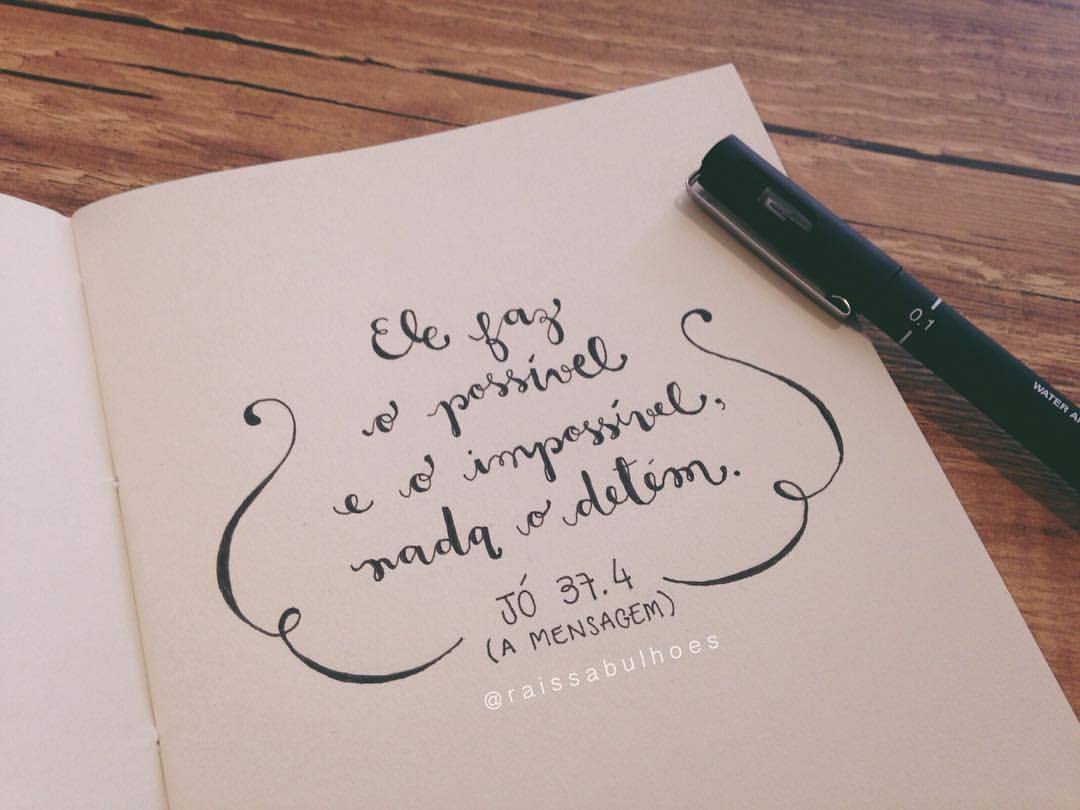 Ele faz
o possível
e o impossível,
nada o detém.
JÓ 37.4
(A MENSAGEM)
@raissabulhoes
0.1
WATER